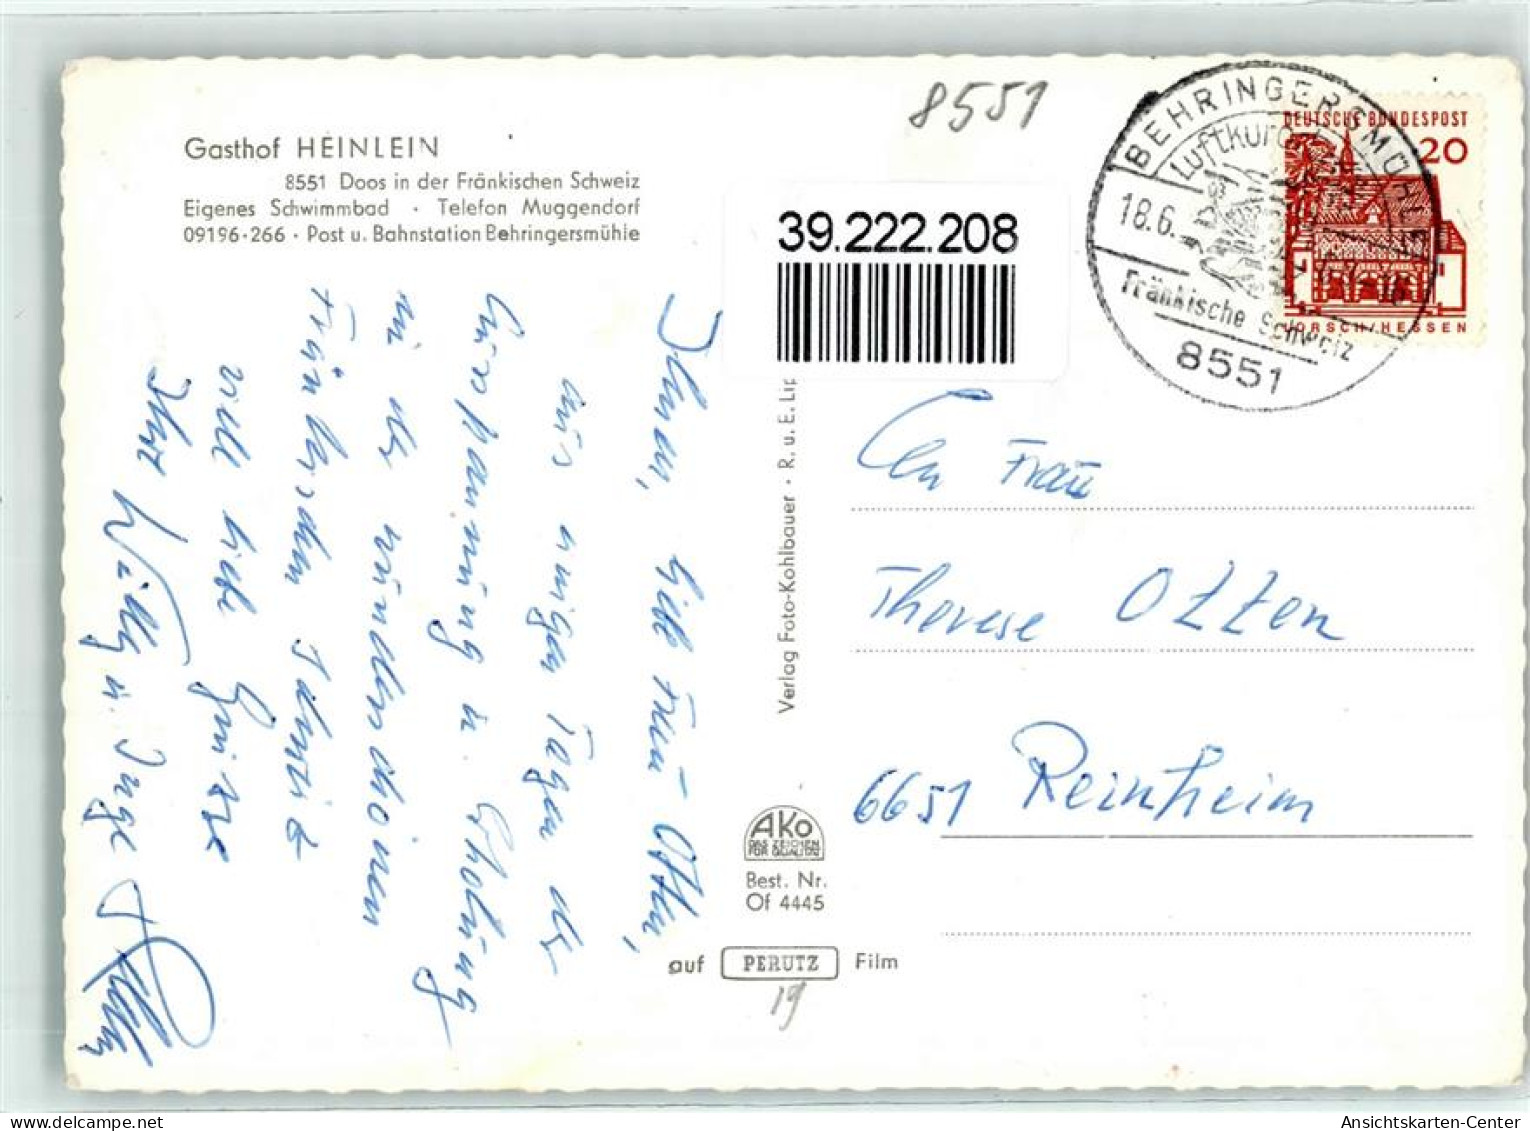 8551
Gasthof HEINLEIN
8551 Doos in der Fränkischen Schweiz
Eigenes Schwimmbad · Telefon Muggendorf
09196-266 · Post u. Bahnstation Behringersmühle
39.222.208
BEHRINGERSMÜHLE
Luftkurort
18.6.
Fränkische Schweiz
8551
DEUTSCHE BUNDESPOST
20
LORSCH/HESSEN
Ihnen, liebe Frau Otten,
aus einigen Tagen der
Ausspannung u. Erholung
in der wunderschönen
Fränkischen Schweiz
viele liebe Grüsse
Ihre Willy u. Inge
Verlag Foto-Kohlbauer · R. u. E. Lip
An Frau
Therese Otten
6651 Reinheim
AKO
DAS ZEICHEN
FÜR QUALITÄT
Best. Nr.
Of 4445
auf PERUTZ Film
19
Ansichtskarten-Center